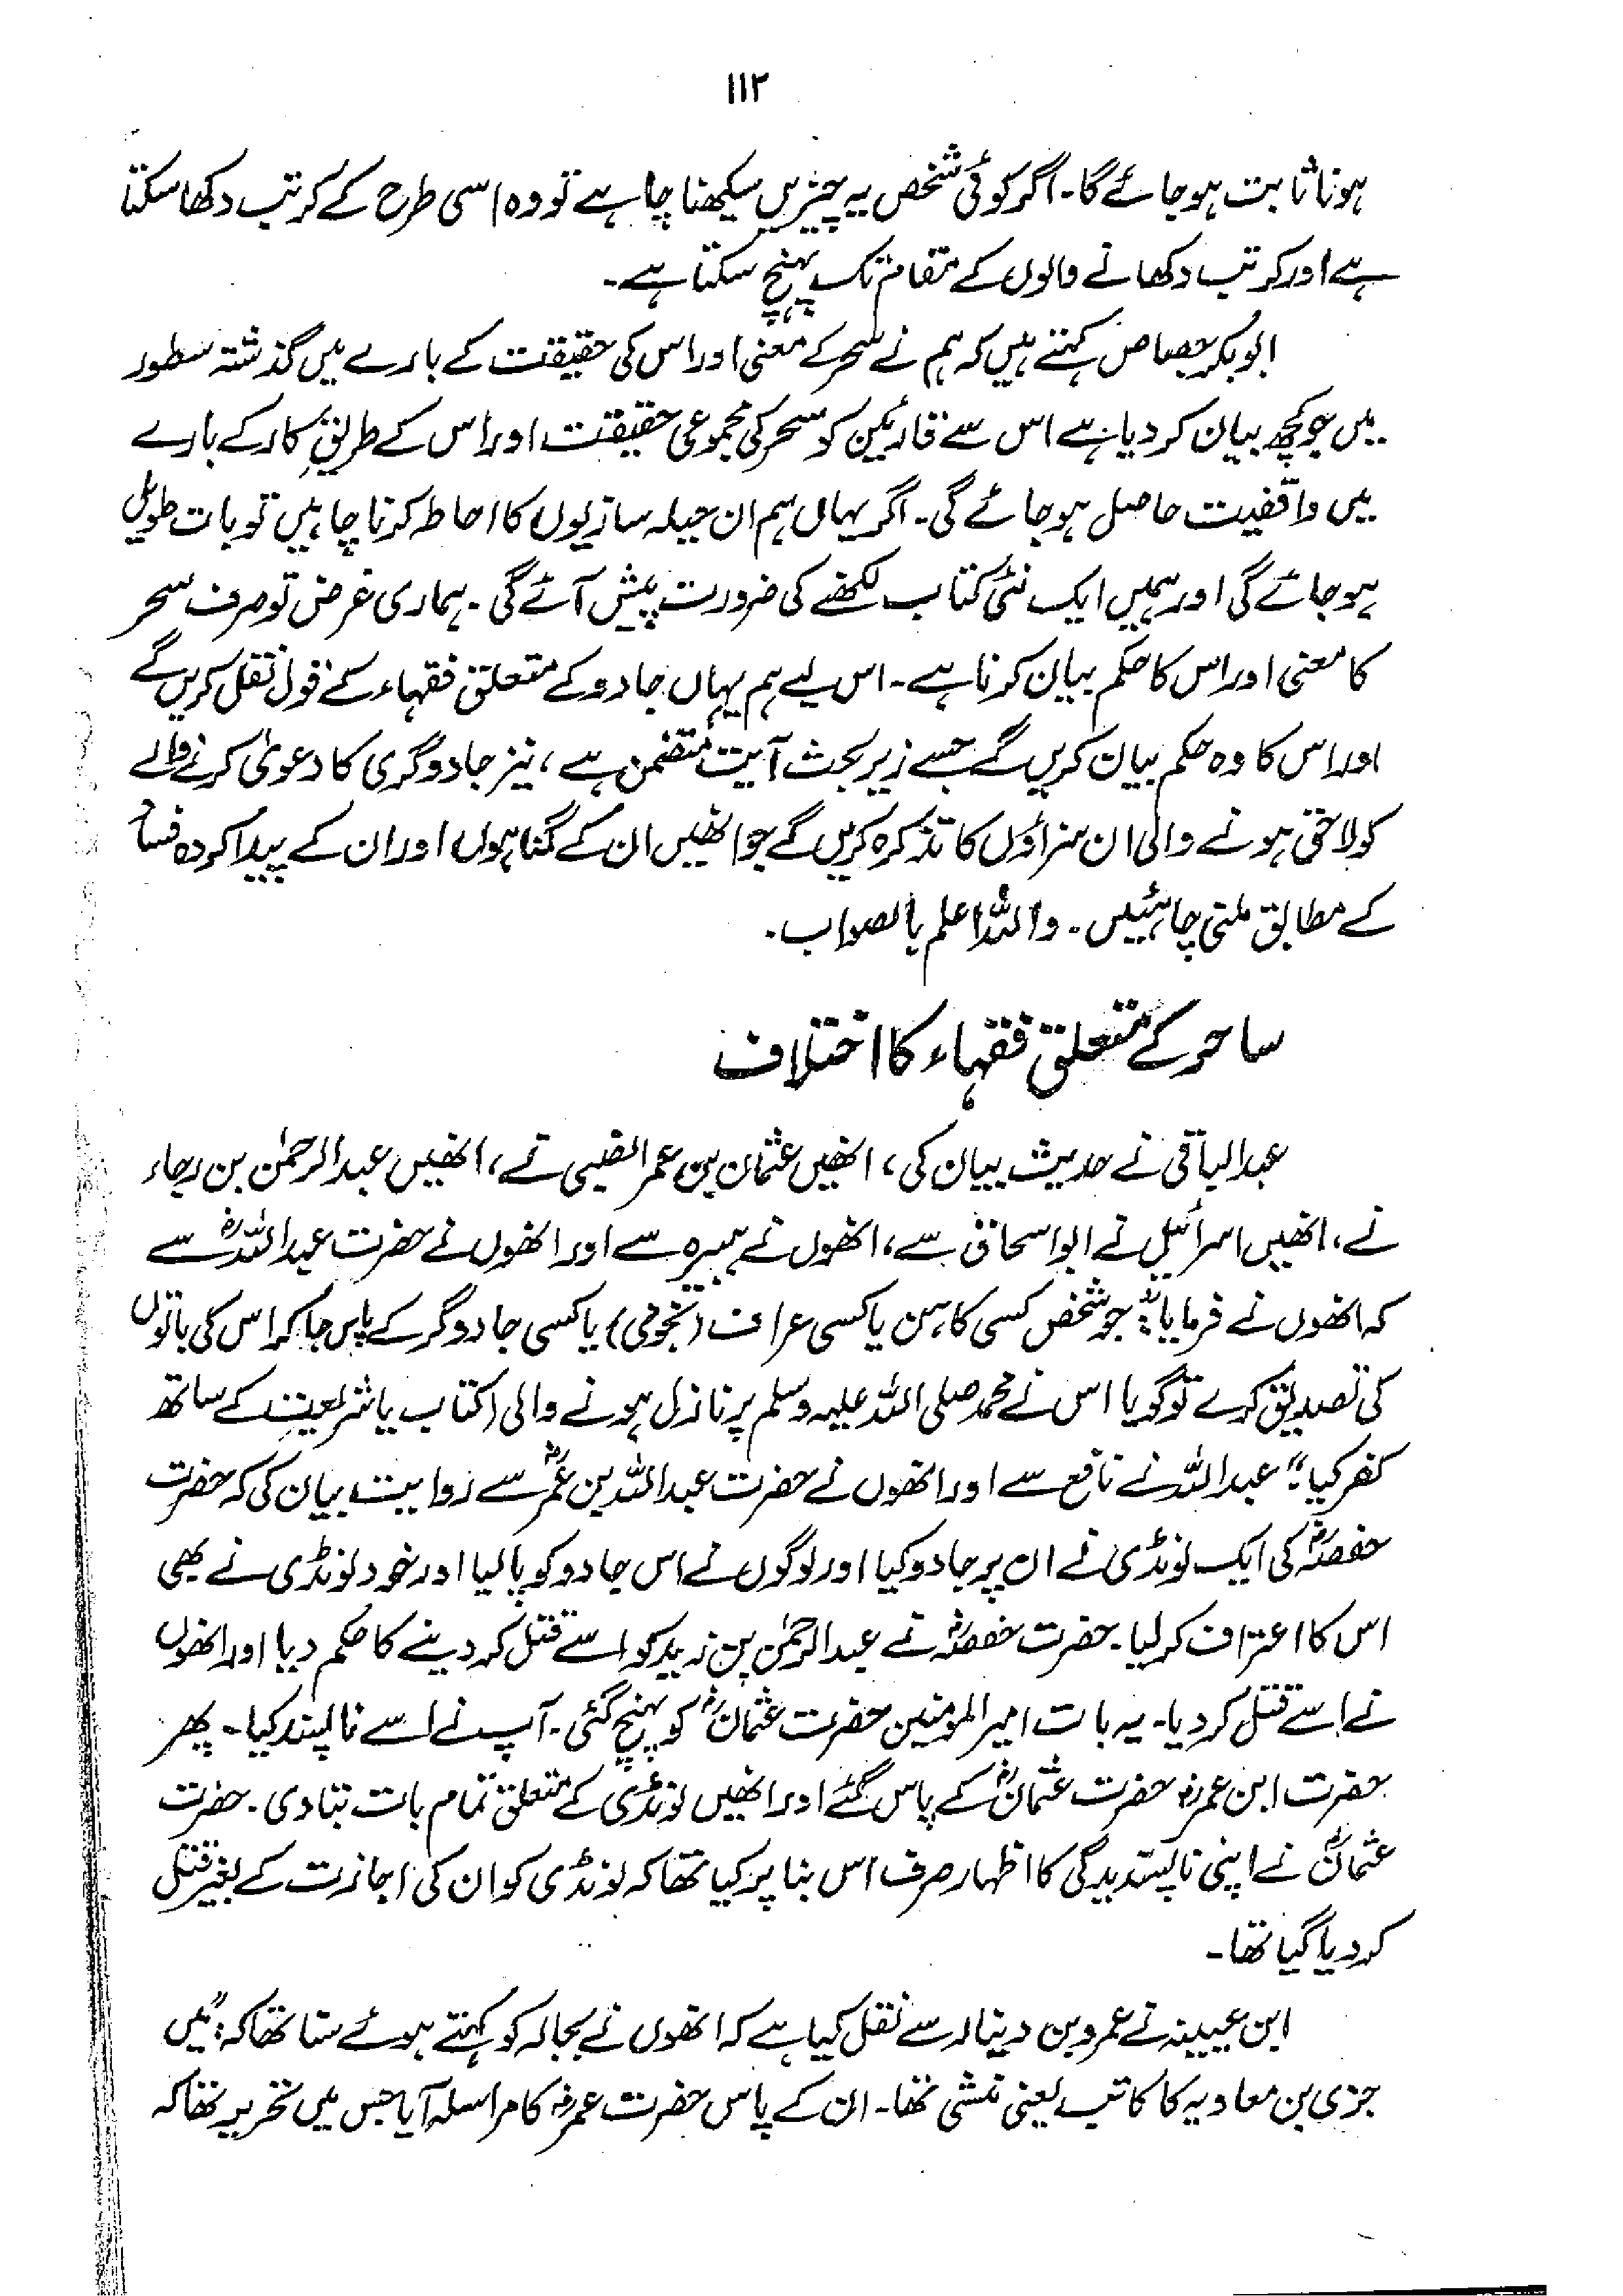 ۱۱۲
ہونا ثابت ہو جائے گا۔ اگر کوئی شخص یہ چیزیں سیکھنا چاہے تو وہ اسی طرح کے کرتب دکھا سکتا
ہے اور کرتب دکھانے والوں کے مقام تک پہنچ سکتا ہے۔
ابوبکر جصاص کہتے ہیں کہ ہم نے سحر کے معنی اور اس کی حقیقت کے بارے میں گذشتہ سطور
میں جو کچھ بیان کر دیا ہے اس سے قارئین کو سحر کی مجموعی حقیقت اور اس کے طریقِ کار کے بارے
میں واقفیت حاصل ہو جائے گی۔ اگر یہاں ہم ان حیلہ سازیوں کا احاطہ کرنا چاہیں تو بات طویل
ہو جائے گی اور ہمیں ایک نئی کتاب لکھنے کی ضرورت پیش آئے گی۔ ہماری غرض تو صرف سحر
کا معنی اور اس کا حکم بیان کرنا ہے۔ اس لیے ہم یہاں جادو کے متعلق فقہاء کے قول نقل کریں گے
اور اس کا وہ حکم بیان کریں گے جسے زیر بحث آیت متضمن ہے، نیز جادوگری کا دعویٰ کرنے والے
کو لاحق ہونے والی ان سزاؤں کا تذکرہ کریں گے جو انھیں ان کے گناہوں اور ان کے پیدا کردہ فساد
کے مطابق ملنی چاہئیں۔ واللہ اعلم بالصواب۔
ساحر کے متعلق فقہاء کا اختلاف
عبدالباقی نے حدیث بیان کی، انھیں عثمان بن عمر الضبی نے، انھیں عبدالرحمٰن بن رجاء
نے، انھیں اسرائیل نے ابواسحاق سے، انھوں نے ہبیرہ سے اور انھوں نے حضرت عبداللہؓ سے
کہ انھوں نے فرمایا: "جو شخص کسی کاہن یا کسی عراف (نجومی) یا کسی جادوگر کے پاس جا کر اس کی باتوں
کی تصدیق کرے تو گویا اس نے محمد صلی اللہ علیہ وسلم پر نازل ہونے والی (کتاب یا شریعت کے ساتھ
کفر کیا"۔ عبداللہ نے نافع سے اور انھوں نے حضرت عبداللہ بن عمرؓ سے روایت بیان کی کہ حضرت
حفصہؓ کی ایک لونڈی نے ان پر جادو کیا اور لوگوں نے اس جادو کو پا لیا اور خود لونڈی نے بھی
اس کا اعتراف کر لیا۔ حضرت حفصہؓ نے عبدالرحمٰن بن زید کو اسے قتل کر دینے کا حکم دیا اور انھوں
نے اسے قتل کر دیا۔ یہ بات امیرالمومنین حضرت عثمانؓ کو پہنچ گئی۔ آپ نے اسے ناپسند کیا۔ پھر
حضرت ابن عمرؓ حضرت عثمانؓ کے پاس گئے اور انھیں لونڈی کے متعلق تمام بات بتا دی۔ حضرت
عثمانؓ نے اپنی ناپسندیدگی کا اظہار صرف اس بنا پر کیا تھا کہ لونڈی کو ان کی اجازت کے بغیر قتل
کر دیا گیا تھا۔
ابن عیینہ نے عمرو بن دینار سے نقل کیا ہے کہ انھوں نے بجالہ کو کہتے ہوئے سنا تھا کہ: "میں
جزی بن معاویہ کا کاتب یعنی منشی تھا۔ ان کے پاس حضرت عمرؓ کا مراسلہ آیا جس میں تحریر تھا کہ